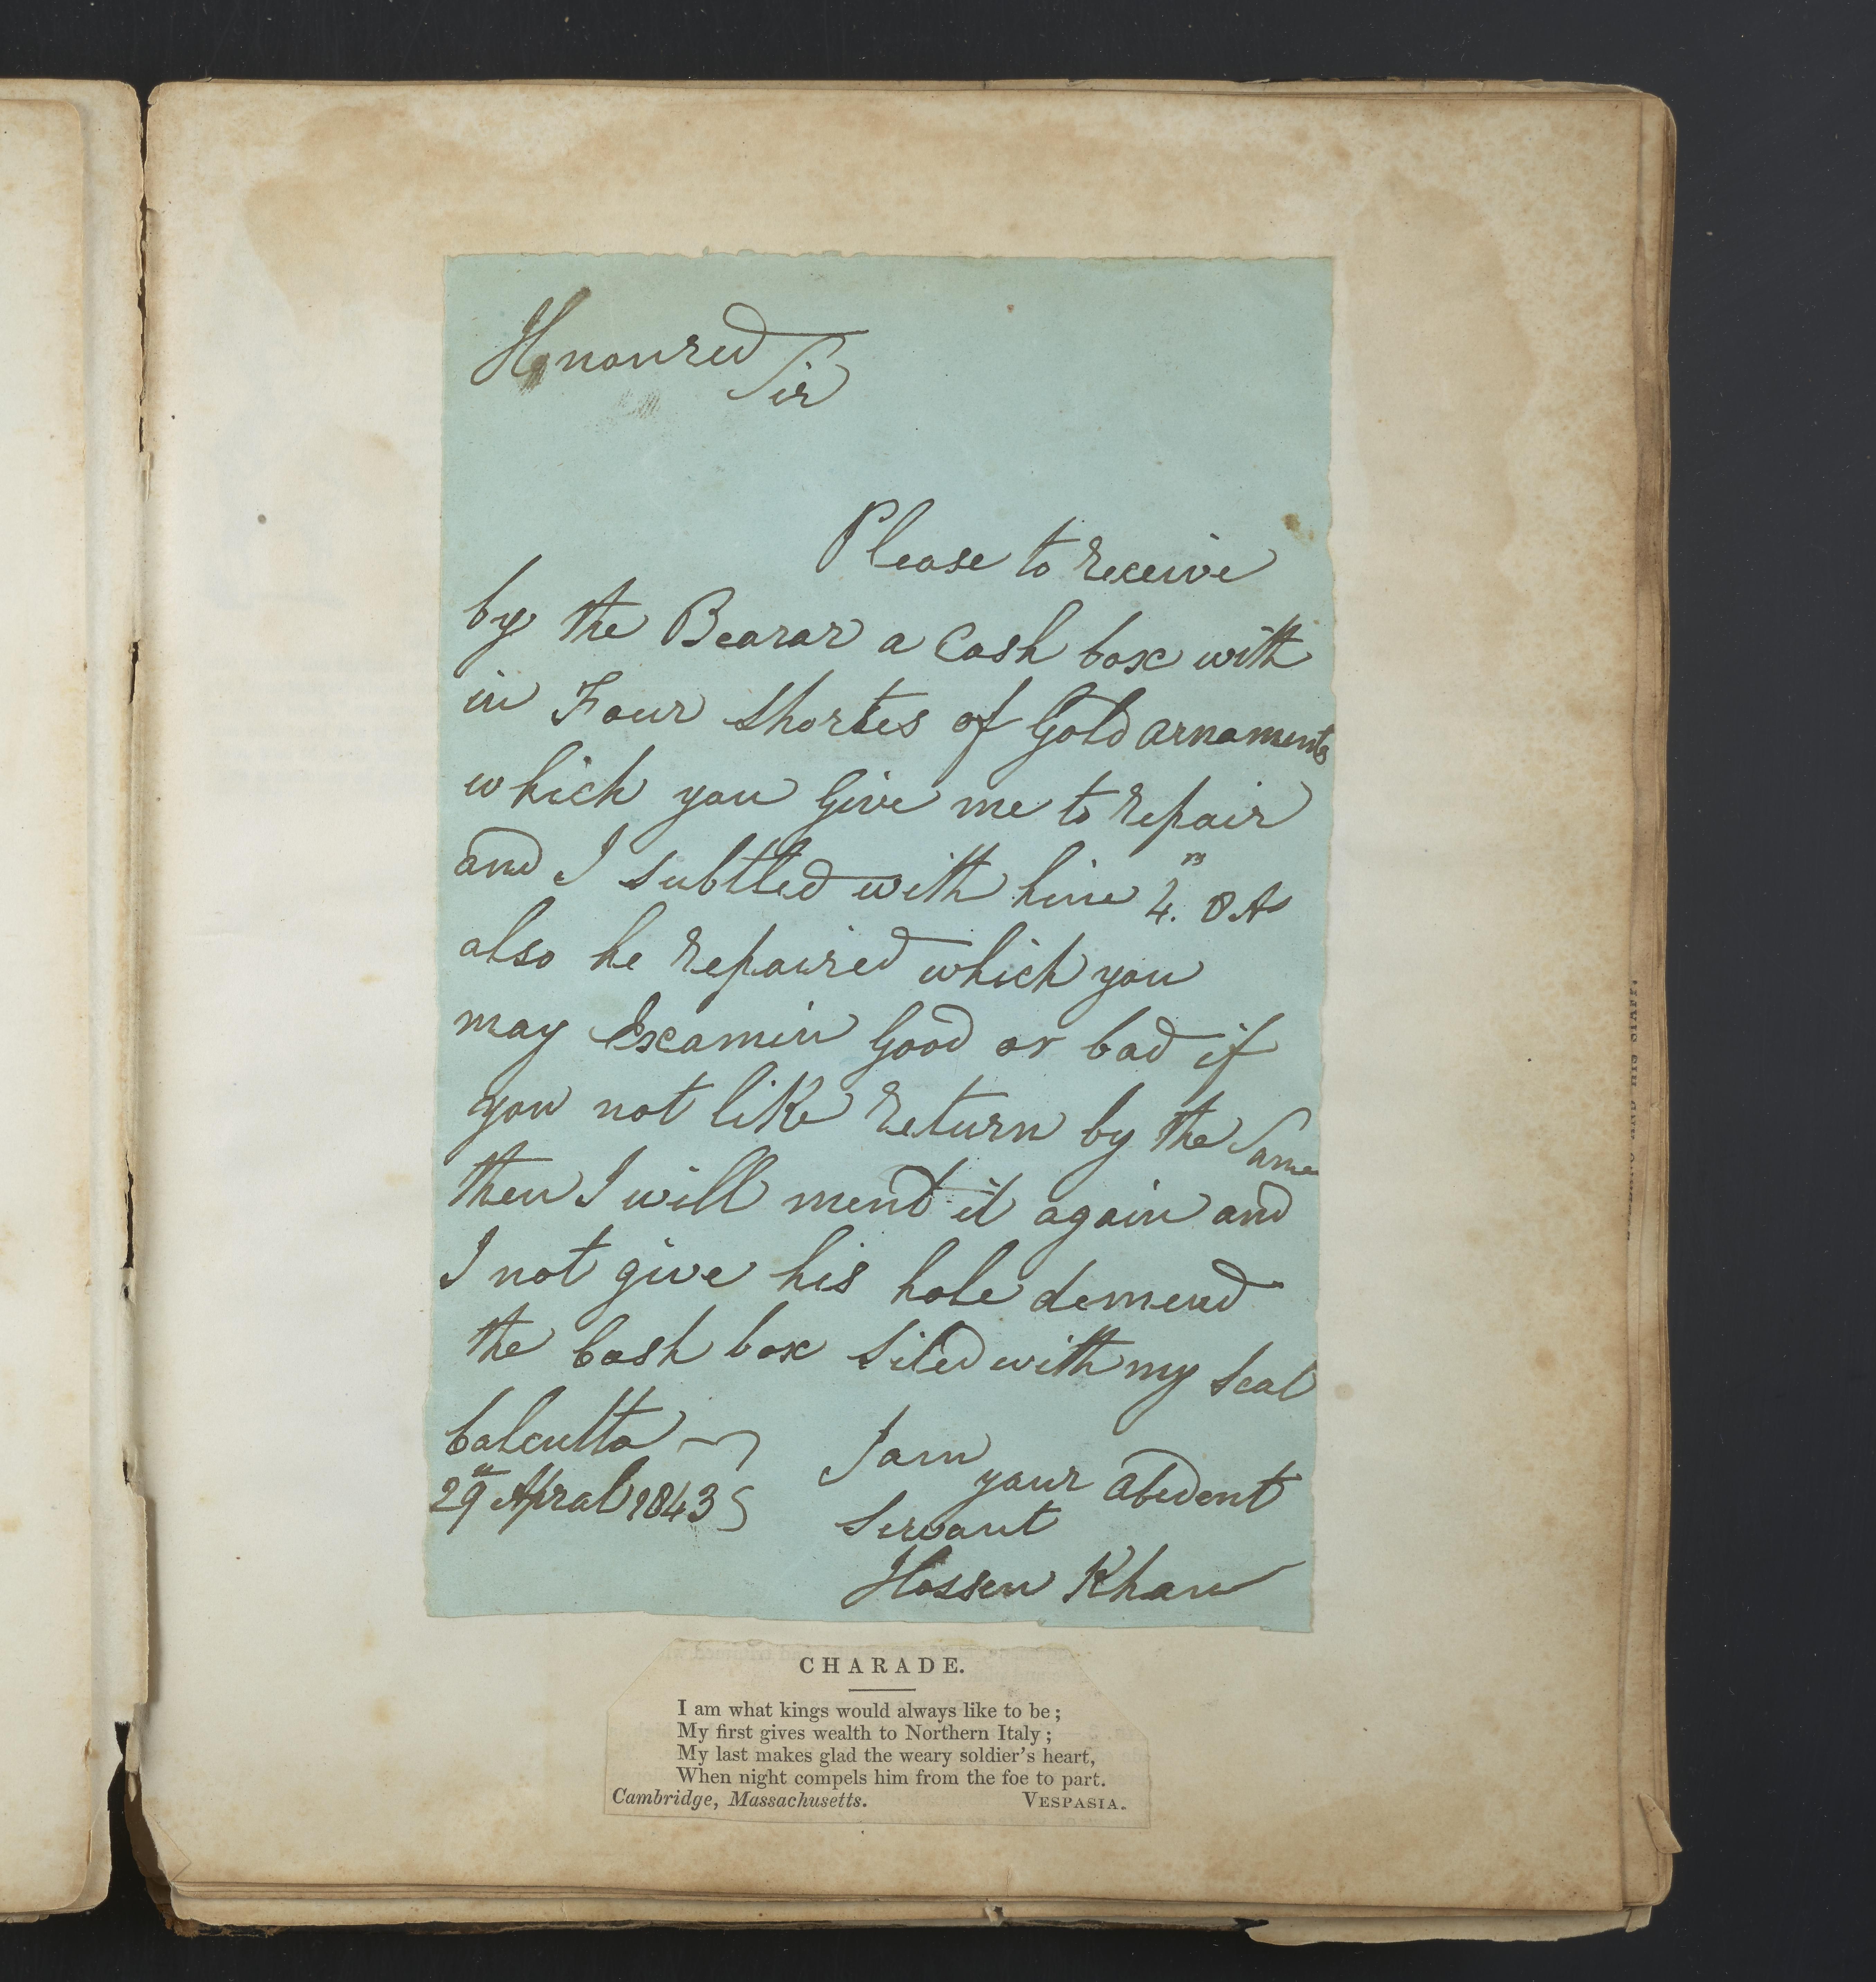 Honoured
Sir
Please to receive
by the Bearar a Cash box with
in Four Shortes of Gold arnaments
which you Give me to repair
and I subtled with hime 4. 8 As
also he repaired which you
may Examin Good or bad if
you not like return by the Same
then I will mend it again and
I not give his hole demend
the Cash box Siled with my Seal
Calcutta
29th Apral 1843
I am
your Abedent
Servant
Hossen Khan
CHARADE.
I am what kings would always like to be;
My first gives wealth to Northern Italy;
My last makes glad the weary soldier's heart,
When night compels him from the foe to part.
Cambridge, Massachusetts. VESPASIA.